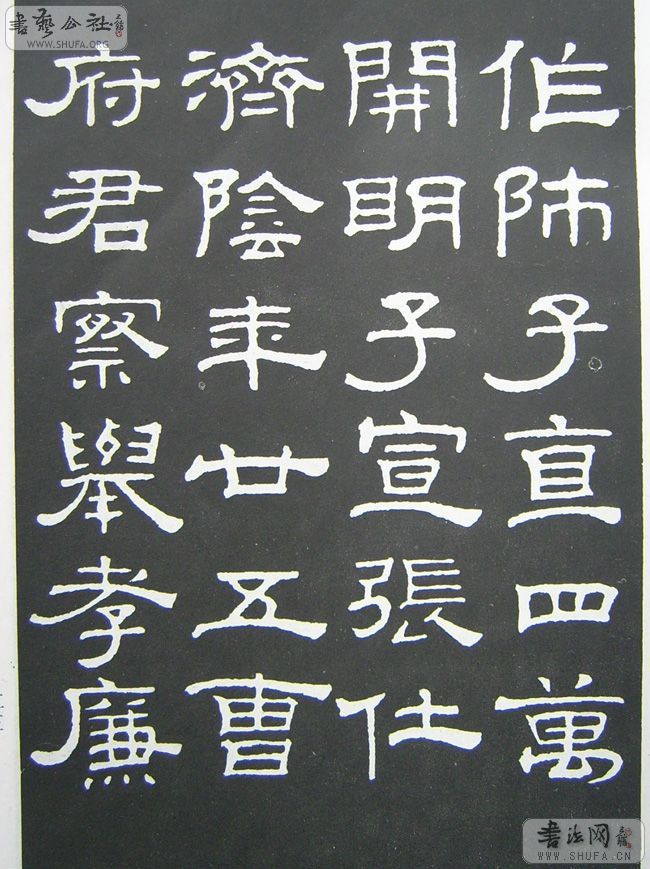 作師子直四萬
開明子宣張仕
濟陰年廿五曹
府君察舉孝廉
書藝公社
WWW.SHUFA.ORG
書法网
WWW.SHUFA.CN